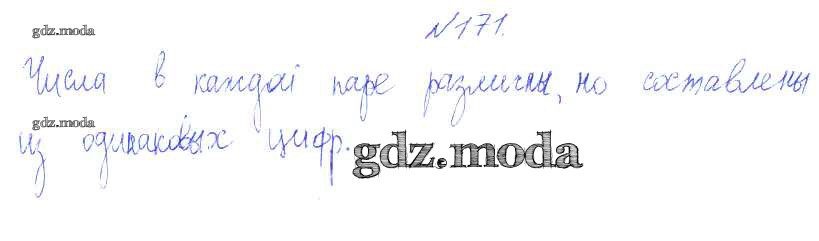 gdz.moda
№171.
Числа в каждой паре различны, но составлены
gdz.moda
из одинаковых цифр.
gdz.moda